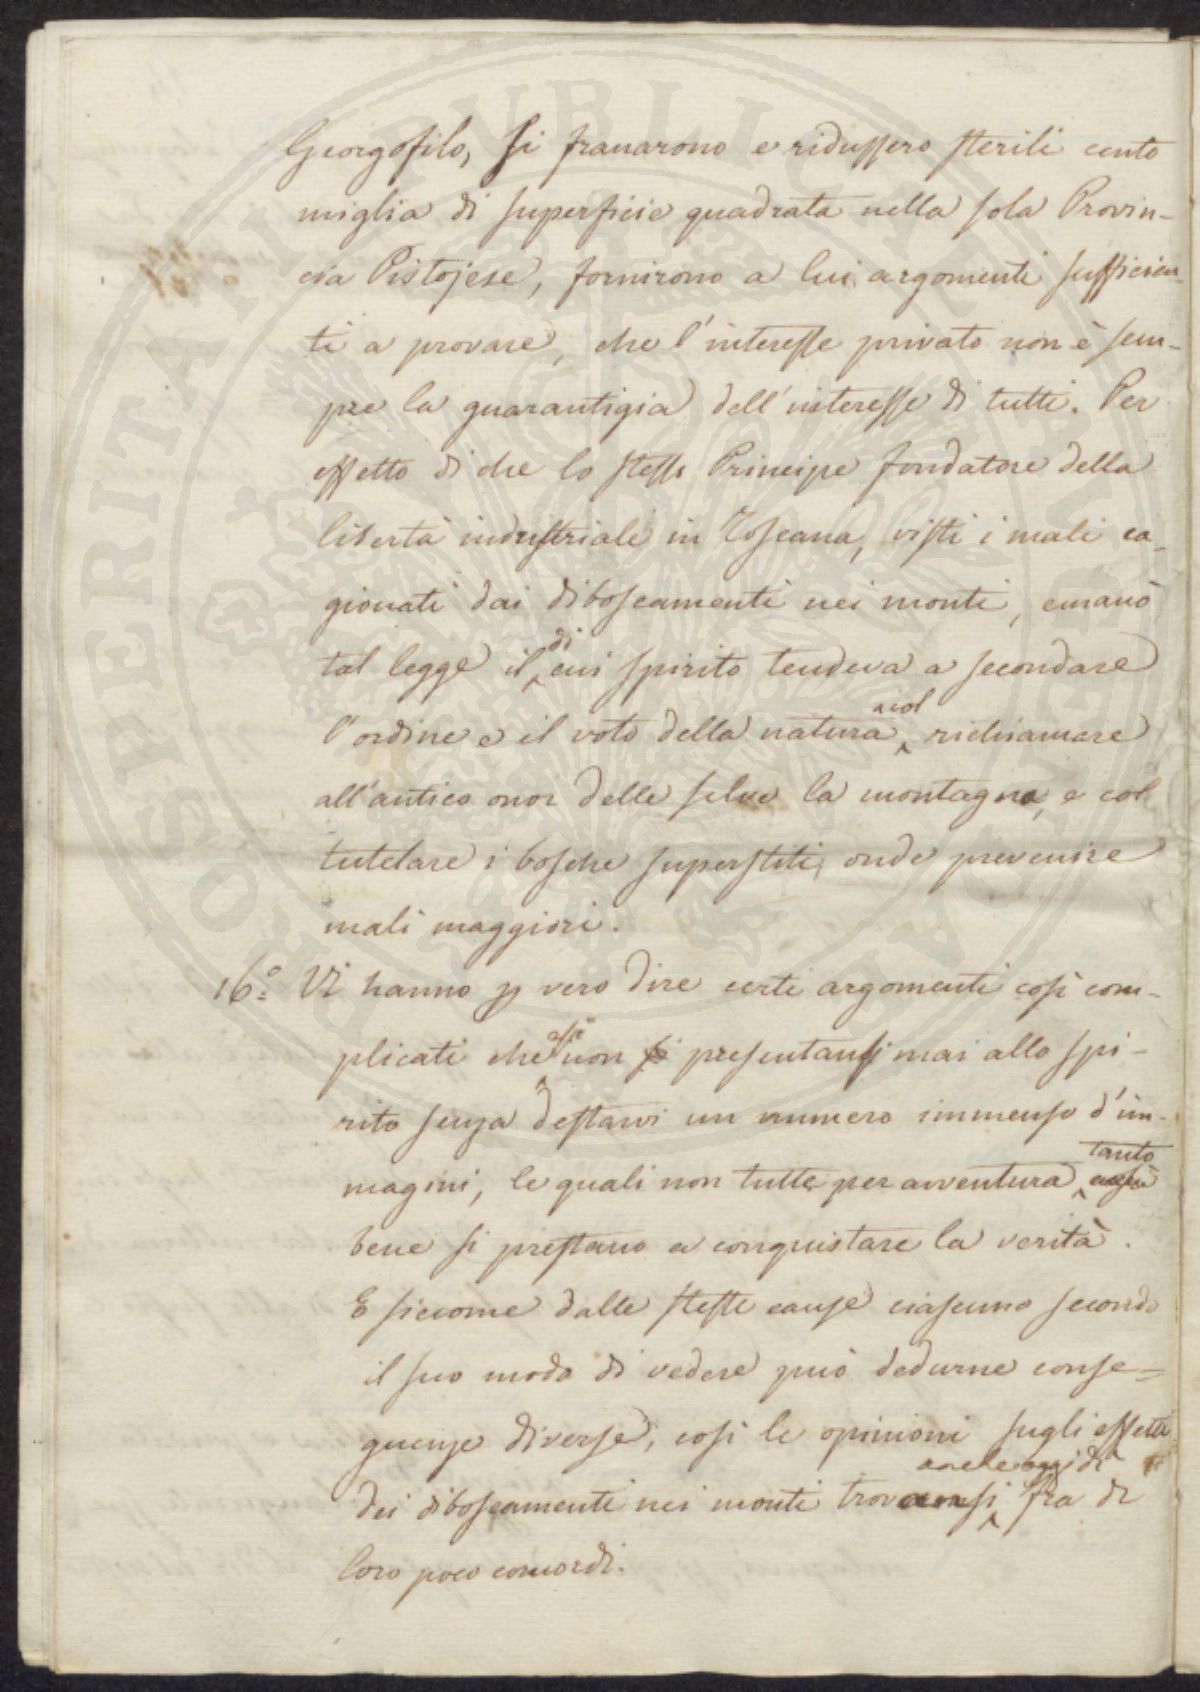 Georgofilo, si franarono e ridussero sterili cento
miglia di superficie quadrata nella sola Provin-
cia Pistojese, fornirono a lui argomenti sufficien-
ti a provare, che l'interesse privato non è sem-
pre la guarantigia dell'interesse di tutti. Per
effetto di che lo stesso Principe fondatore della
libertà industriale in Toscana, visti i mali ca-
gionati dai diboscamenti nei monti, emanò
tal legge il di cui spirito tendeva a secondare
l'ordine e il voto della natura, col richiamare
all'antico onor delle selve la montagna, e col
tutelare i boschi superstiti, onde prevenire
mali maggiori.
16.° Vi hanno p vero dire certi argomenti così com-
plicati che non presentansi mai allo spi-
rito senza destarvi un numero immenso d'im-
magini, le quali non tutte per avventura tanto
bene si prestano a conquistare la verità.
E siccome dalle stesse cause ciascuno secondo
il suo modo di vedere può dedurne conse-
guenze diverse, così le opinioni sugli effetti
dei diboscamenti nei monti trovansi anche oggidì fra di
loro poco concordi.
PROSPERITATI PUBLICAE